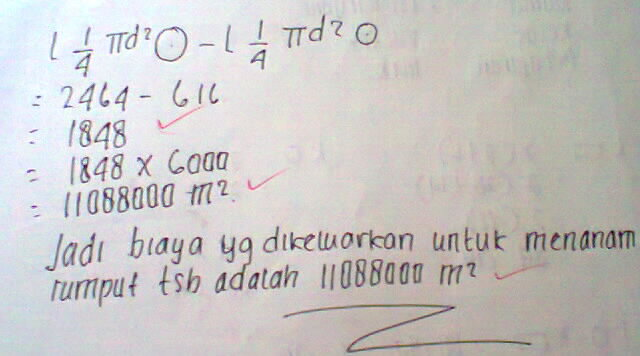 L 1/4 πd² O - L 1/4 πd² O
= 2464 - 616
= 1848
= 1848 x 6000
= 11088000 m².
Jadi biaya yg dikeluarkan untuk menanam
rumput tsb adalah 11088000 m²